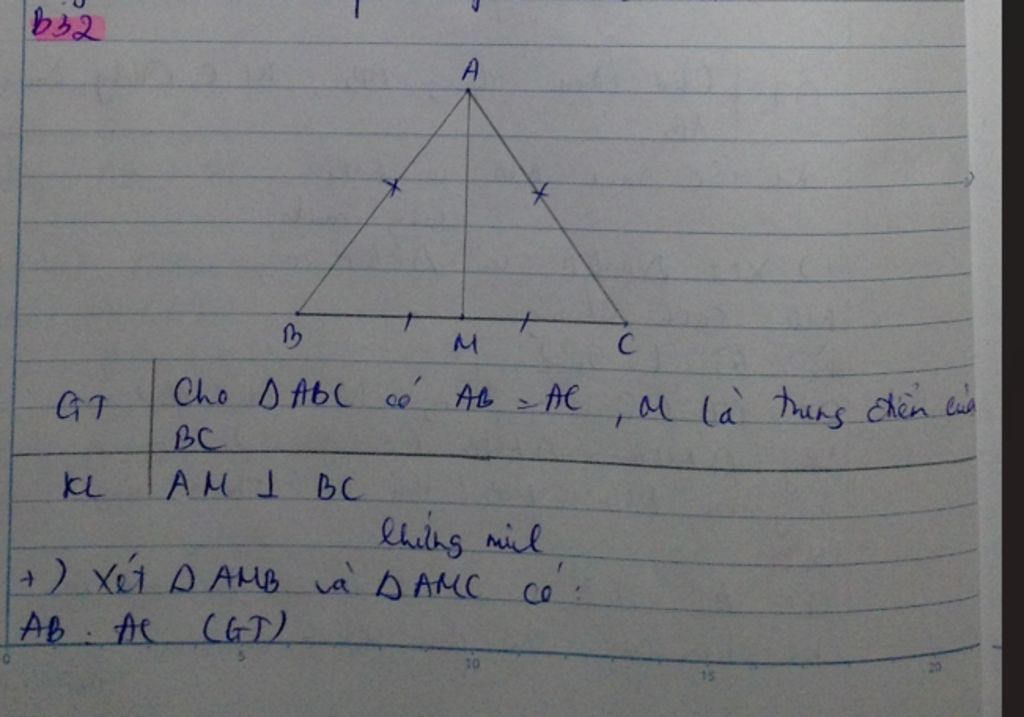 b32
A
B
M
C
GT Cho Δ ABC có AB = AC , M là trung điểm của
BC
KL AM ⊥ BC
Chứng minh
+) Xét Δ AMB và Δ AMC có :
AB = AC (GT)
0 5 10 15 20